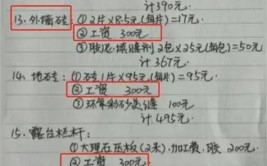 计390元
13.外墙砖 ①2片×8.5元(每片)=17元
②工资 300元
③胶泥、填缝剂2包×25元(每包)=50元
计367元
14.地砖: ①砖1片×95元(每片)=95元
②工资 300元
③环氧彩砂美缝 100元
计495元
15.露台栏杆:
①大理石压板(2条)、加工费、胶 200元
②工资 300元